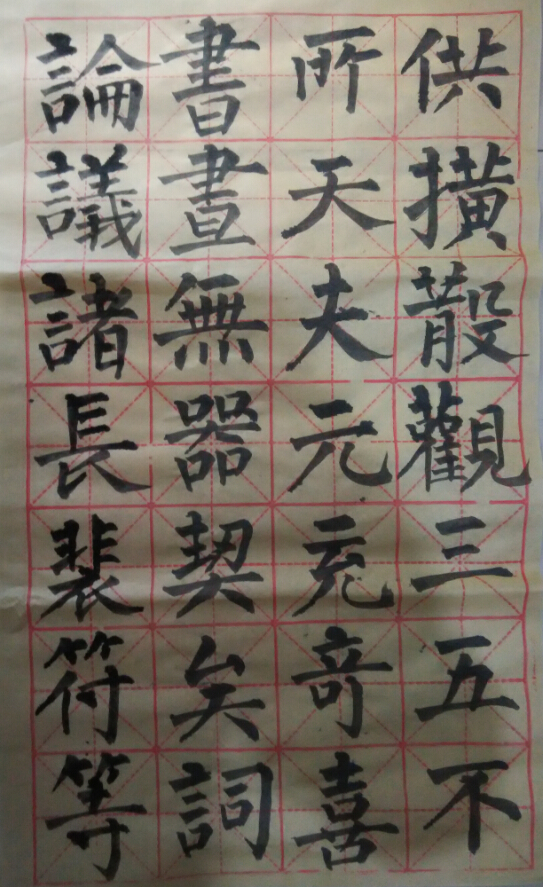 供撗散觀三五不
所天夫元充竒喜
書晝無器契矣詞
論議諸長裴符等